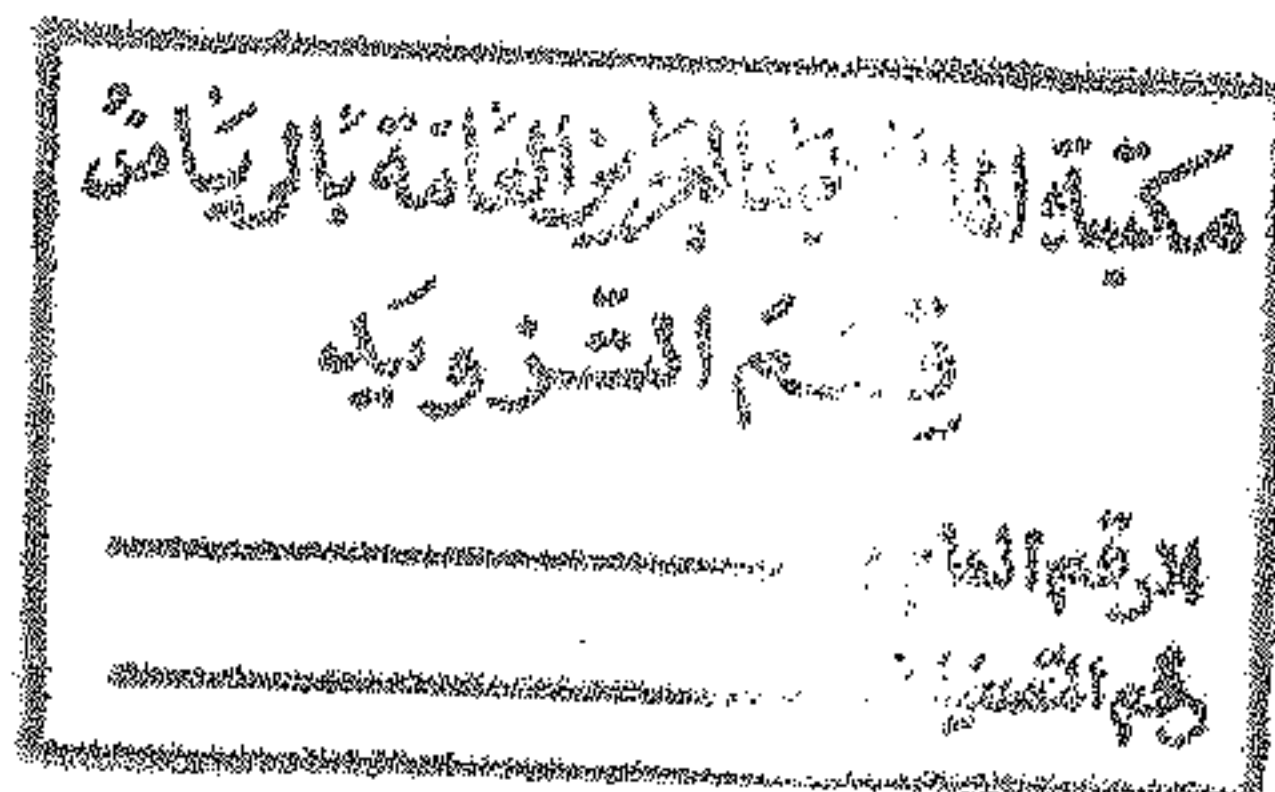 مكتبة الملك عبدالعزيز العامة بالرياض
قسم التزويد
الرقم العام
رقم التصنيف